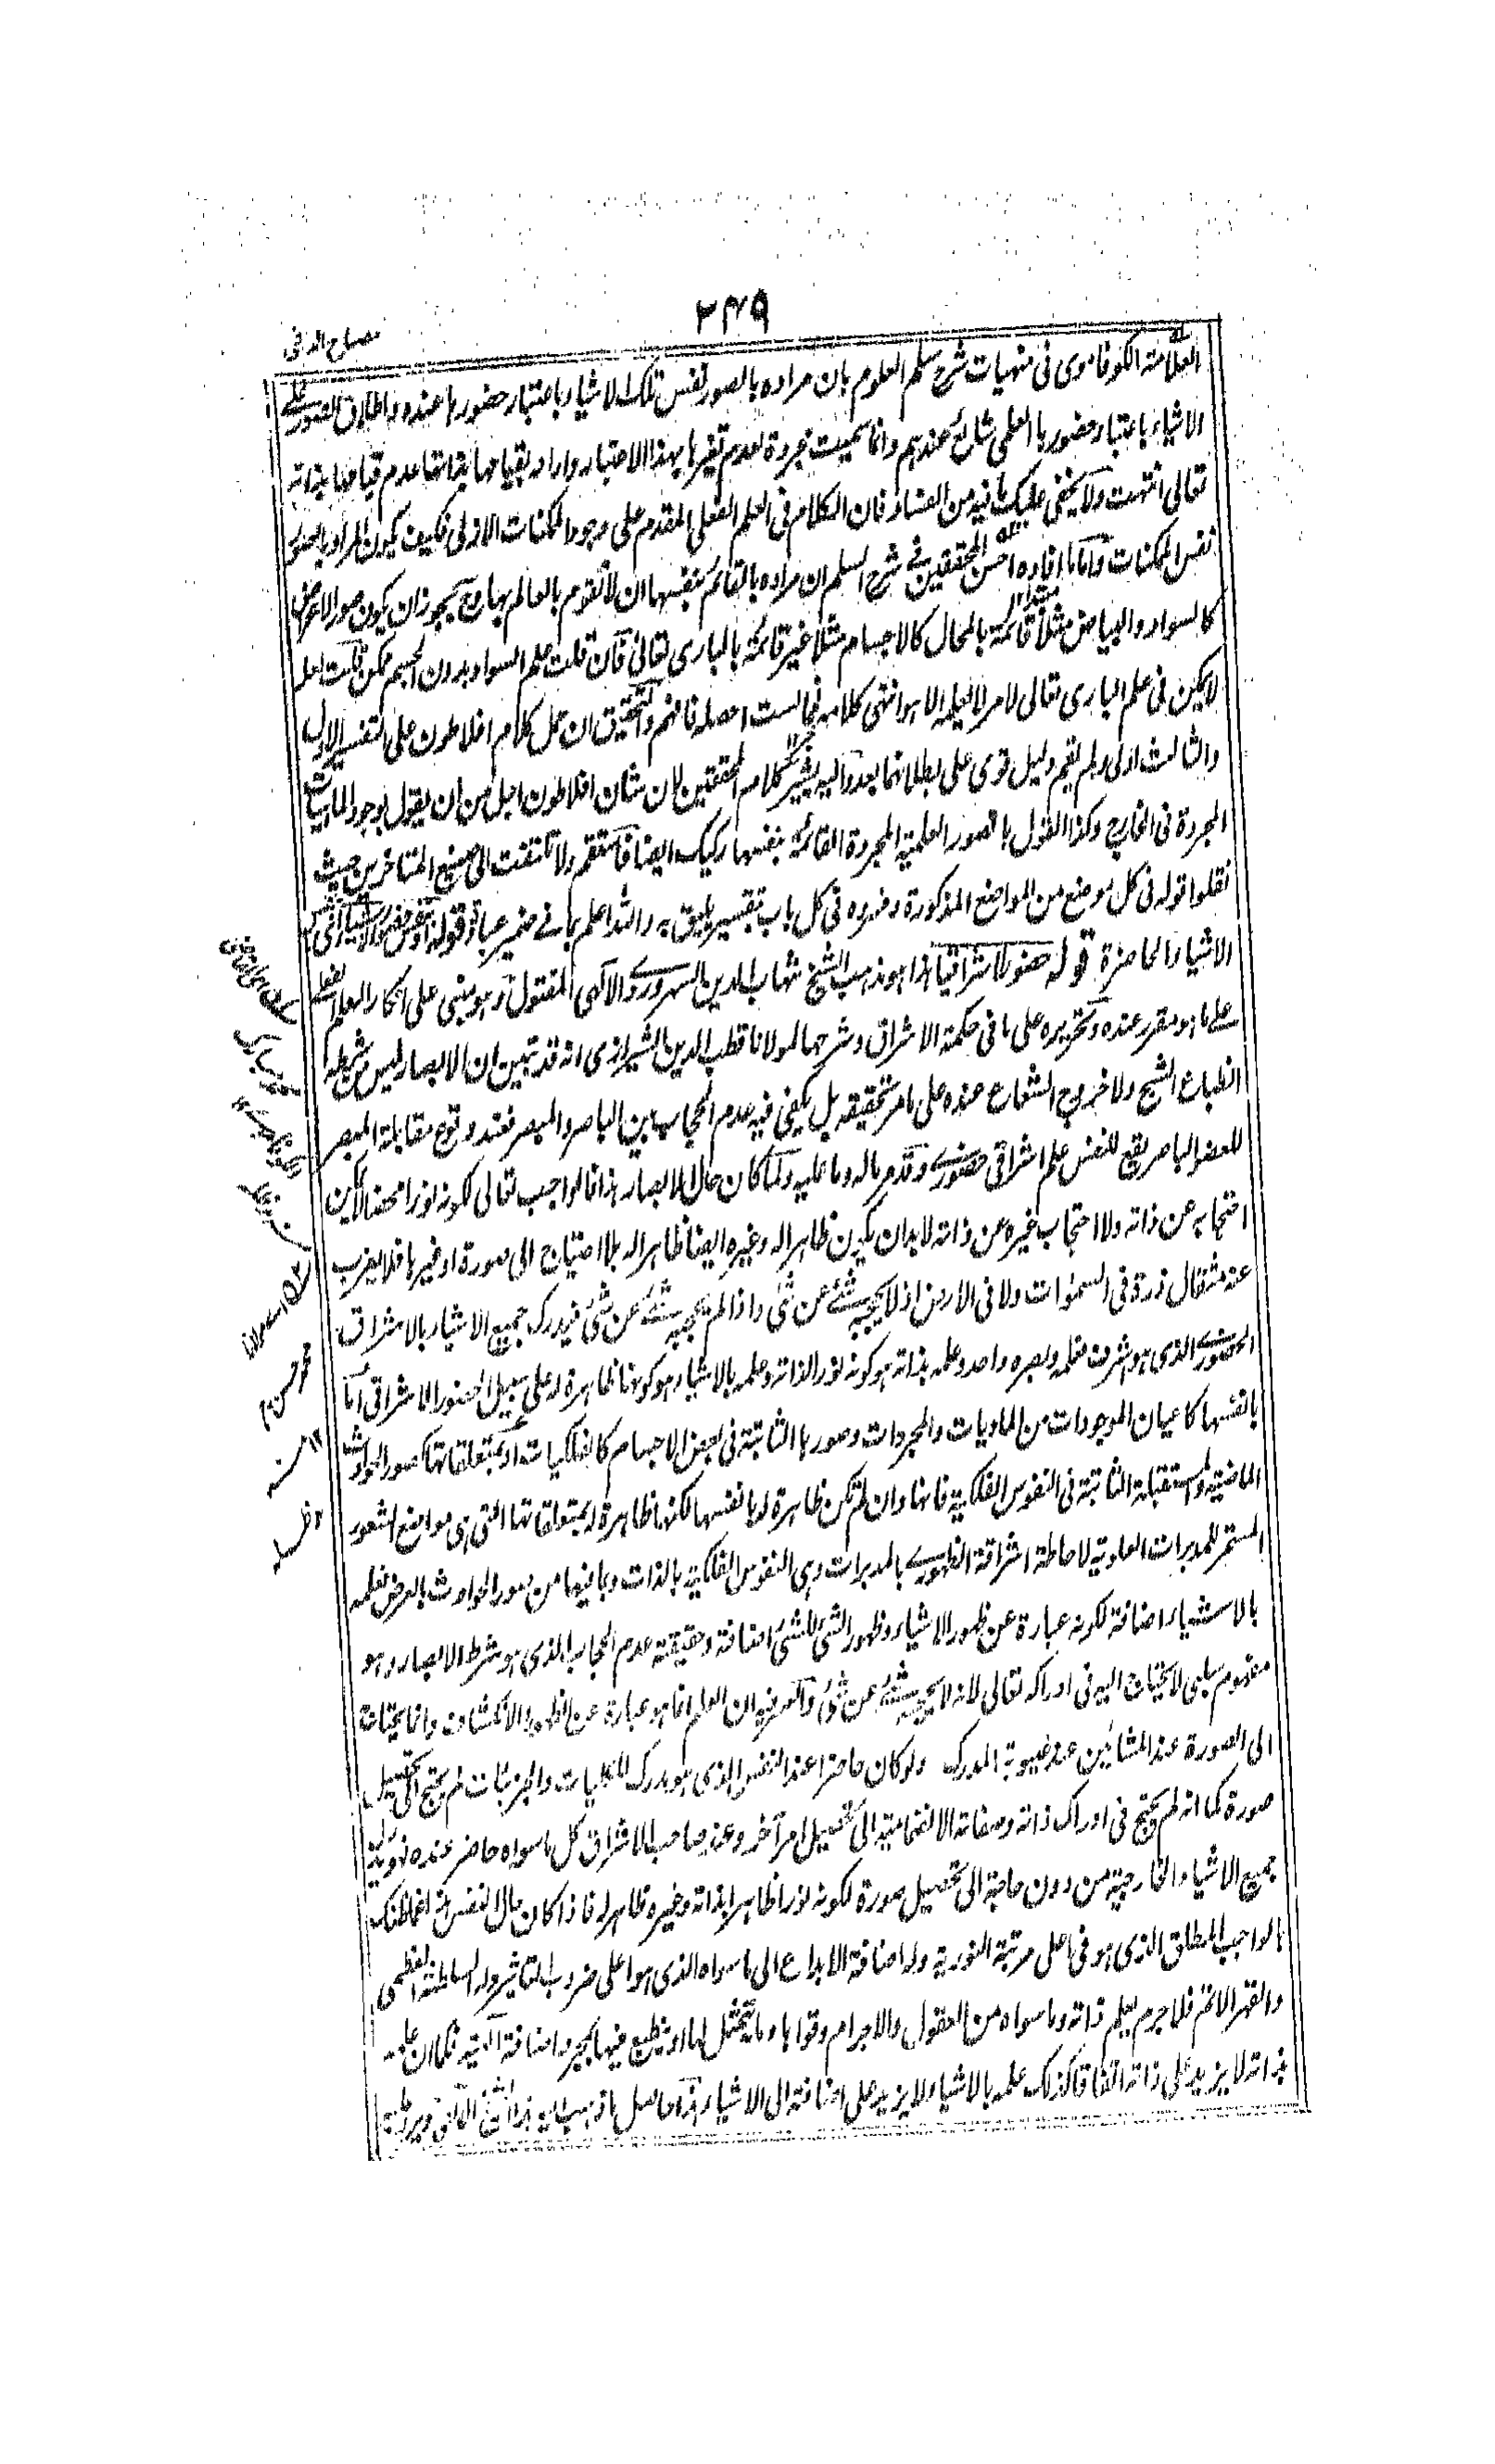 ٢٤٩
مصباح الدجى
العلامة الكوفاموى فى منهيات شرح سلم العلوم بان مراده بالصور نفس تلك الاشياء باعتبار حضورها عنده واطلاق الصور على
الاشياء باعتبار حضورها العلمى شائع عندهم وانما سميت مجردة لعدم تغيرها بهذا الاعتبار واراد بقيامها بذاتها عدم قيامها بذاته
تعالى انتهت ولا يخفى عليك ما فيه من الفساد فان الكلام فى العلم الفعلى المقدم على وجود الممكنات الازلى فكيف يكون المراد بالصور
نفس الممكنات واما ما افاده احسن المحققين فى شرح السلم ان مراده بالقائمة بنفسها ان لا تقوم بالعالم بها وح يجوز ان يكون صور الاعراض
كالسواد والبياض مثلا قائمة بالمحال كالاجسام مثلا غير قائمة بالبارى تعالى فان قلت علم السواد بدون الجسم ممكن قلت لعله
لا يمكن فى علم البارى تعالى لامر لا يعلمه الا هو انتهى كلامه فما لست احصله فافهم والتحقيق ان حمل كلام افلاطون على التفسير الاول
والثالث اولى ولم يقم دليل قوى على بطلانهما بعد واليه يشير كلام المحققين لان شان افلاطون اجل من ان يقول بوجود الماهيات
المجردة فى الخارج وكذا القول بالصور العلمية المجردة القائمة بنفسها ركيك ايضا فاستقم ولا تلتفت الى صنيع المتاخرين حيث
نقلوا قوله فى كل موضع من المواضع المذكورة وفسروه فى كل باب بتفسير يليق به والله اعلم بما فى ضمير عباده قوله او نفس حضور الاشياء اى
الاشياء الحاضرة قوله حضورا اشراقيا هذا هو مذهب الشيخ شهاب الدين السهروردى الالهى المقتول وهو مبنى على انكار العلم الفعلى
على ما هو مقرر عنده وتحريره على ما فى حكمة الاشراق وشرحها لمولانا قطب الدين الشيرازى انه قد تبين ان الابصار ليس من شرطه
انطباع الشبح ولا خروج الشعاع عنده على ما مر تحقيقه بل يكفى فيه عدم الحجاب بين الباصر والمبصر فعند وقوع مقابلة المبصر
للعضو الباصر يقع للنفس علم اشراقى حضورى وقد مر ما له وما عليه ولما كان حال الابصار هذا فالواجب تعالى لكونه نورا محضا لا يمكن
احتجابه عن ذاته ولا احتجاب غيره عن ذاته لا بد ان يكون ظاهرا له وغيره ايضا ظاهرا له بلا احتياج الى صورة او غيرها فلا يعزب
عنه مثقال ذرة فى السموات ولا فى الارض اذ لا يحجبه شئ عن شئ واذا لم يحجبه شئ عن شئ فيدرك جميع الاشياء بالاشراق
الحضورى الذى هو اشرف فعلمه وبصره واحد وعلمه بذاته هو كونه نورا لذاته وعلمه بالاشياء هو كونها ظاهرة له على سبيل الحضور الاشراقى اما
بانفسها كاعيان الموجودات من الماديات والمجردات وصورها الثابتة فى بعض الاجسام كالفلكيات او بمتعلقاتها كصور الحوادث
الماضية والمستقبلة الثابتة فى النفوس الفلكية فانها وان لم تكن ظاهرة له بانفسها لكنها ظاهرة له بمتعلقاتها التى هى مواضع الشعور
المستمر للمدبرات العلوية لاحاطة اشراقه الظهورى بالمدبرات وهى النفوس الفلكية بالذات وبما فيها من صور الحوادث بالعرض فعلمه
بالاشياء اضافة لكونه عبارة عن ظهور الاشياء وظهور الشئ للشئ اضافة وحقيقته عدم الحجاب الذى هو شرط الابصار وهو
مفهوم سلبى لا يحتاج اليه فى ادراكه تعالى لانه لا يحجبه شئ عن شئ والسر فيه ان العلم انما هو عبارة عن الظهور والانكشاف وانما يحتاج
الى الصورة عند المشائين عند غيبوبة المدرك ولو كان حاضرا عند النفس الذى هو مدرك للكليات والجزئيات لم يحتج الى تحصيل
صورة كما انه لم يحتج فى ادراك ذاته وصفاته الانضمامية الى تحصيل امر آخر وعند صاحب الاشراق كل ما سواه حاضر عنده
جميع الاشياء الخارجية من دون حاجة الى تحصيل صورة لكونه نورا ظاهرا بذاته وغيره ظاهرا له فاذا كان حال النفس هذا فما ظنك
بالواجب المطلق الذى هو فى اعلى مرتبة النورية وله اضافة الابداع الى ما سواه الذى هو اعلى ضروب التاثير وله السلطنة العظمى
والقهر الاتم فلا جرم يعلم ذاته وما سواه من العقول والاجرام وقواها وما يتمثل لها او ينطبع فيها بمجرد اضافة آلية فكما ان علمه
بذاته لا يزيد على ذاته اتفاقا كذلك علمه بالاشياء لا يزيد على اضافته الى الاشياء هذا حاصل ما ذهب اليه هذا الشيخ
محمد حسن